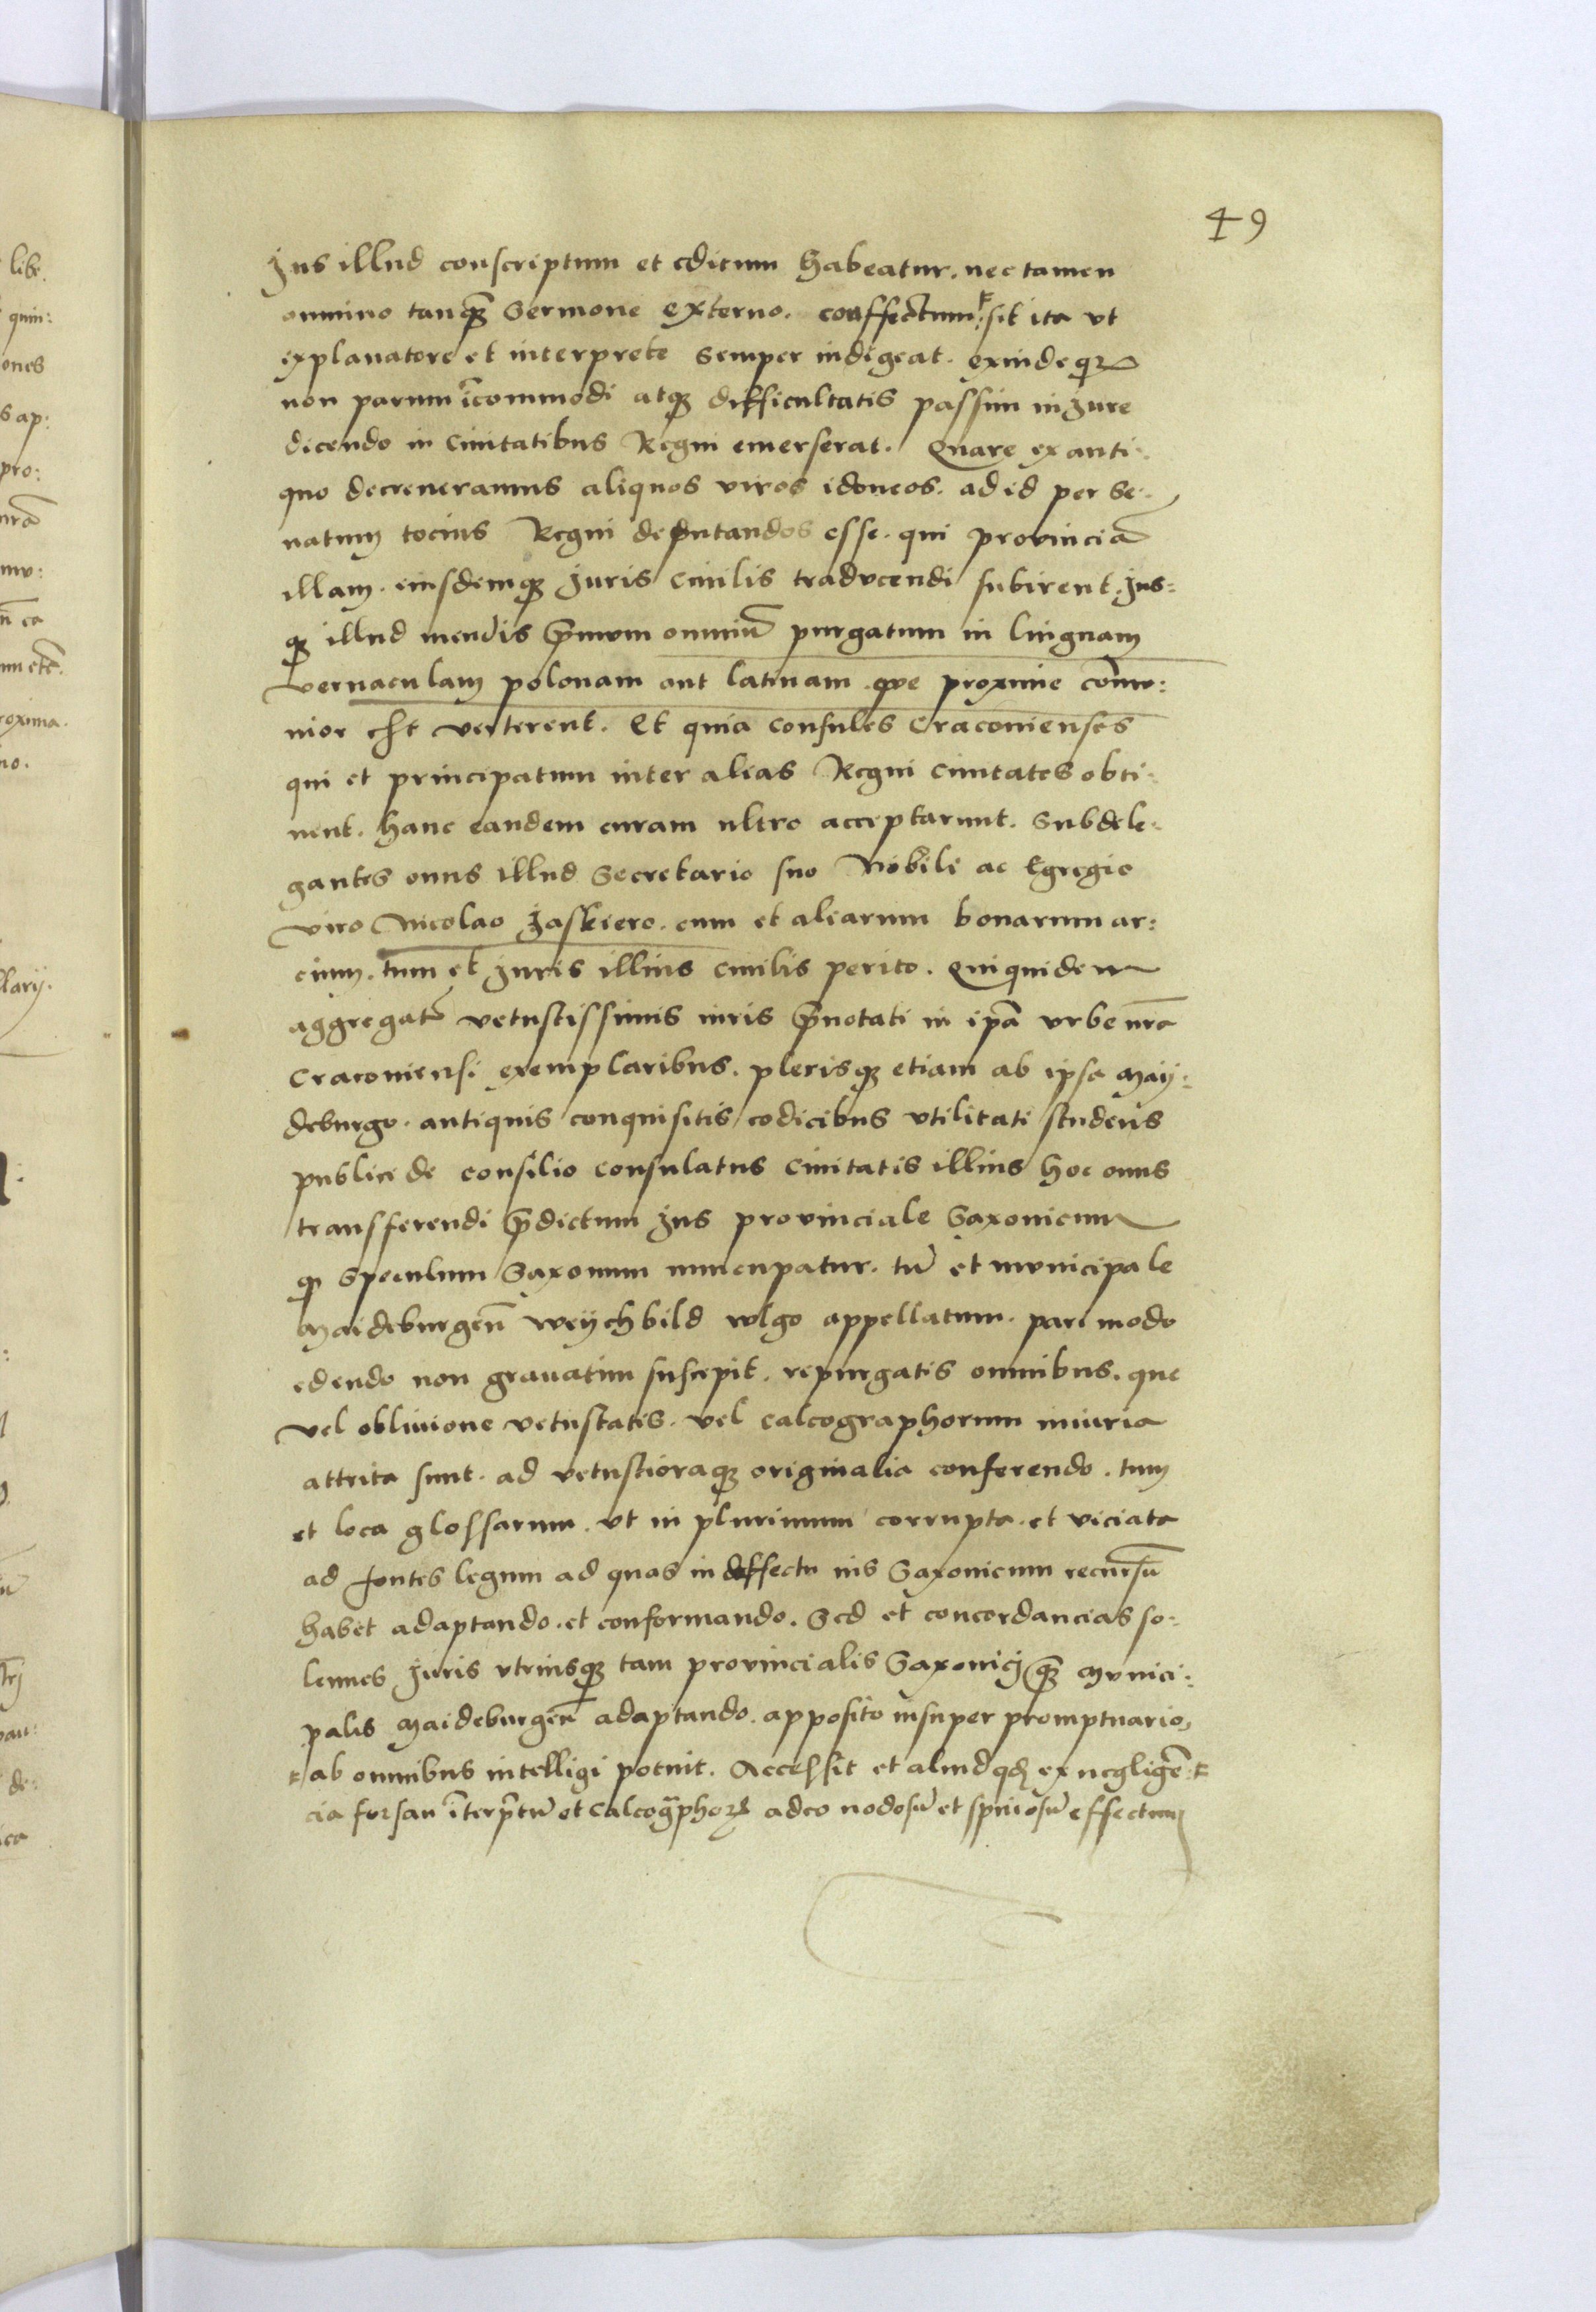 49
Jus illud conscriptum et editum habeatur. nec tamen
omnino tanq̃ Sermone externo. conffectum sit ita vt
explanatore et interprete semper indigeat. exindeq₃
non parum ĩcommodi atq₃ difficultatis passim in jure
dicendo in Ciuitatibus Regni emerserat. Quare ex anti-
quo decreueramus aliquos viros idoneos. ad id per Se-
natum tocius Regni deputandos esse. qui prouinciã
illam. eiusdemq₃ Juris Ciuilis traducendi subirent. Jus=
q₃ illud mendis p̃mum omniũ purgatum in linguam
vernaculam polonam aut latinam que proxime com̃u:
nior est verterent. Et quia consules Cracouienses
qui et principatum inter alias Regni Ciuitates obti-
nent. hanc eandem curam ultro acceptarunt. Subdele-
gantes onus illud Secretario suo Nobili ac Egregio
viro Nicolao Jaskiero. cum et aliarum bonarum ar:
cium. tum et Juris illius ciuilis perito. Qui quidem
aggregatis vetustissimis iuris p̃notati in ip̃a vrbe nr̃a
Cracouiensi exemplaribus. plerisq₃ etiam ab ipsa May:
deburgo. antiquis conquisitis codicibus vtilitati studens
publice de consilio consulatus Ciuitatis illius hoc onus
transferendi p̃dictum Jus prouinciale Saxonicum
q̃ Speculum Saxonum nuncupatur. tũ et municipale
Maideburgeñ weychbild wlgo appellatum. pari modo
edendo non grauatim suscepit. repurgatis omnibus. que
vel obliuione vetustatis. vel calcographorum iniuria
attrita sunt. ad vetustioraq₃ originalia conferendo. tum
et loca glossarum. vt in plurimum corrupta. et viciata
ad fontes legum ad quas in deffectu ius Saxonicum recursũ
habet adaptando. et conformando. Sed et concordancias so-
lennes Juris vtriusq₃ tam prouincialis Saxonici q̃ Munici:
palis Maideburgeñ adaptando. apposito insuper promptuario,
ab omnibus intelligi potuit. Accessit et aliud qd ex negligẽ:
cia forsan ĩterp̃tũ et Calcog̃phoꝝ adeo nodosũ et spinosũ effectum